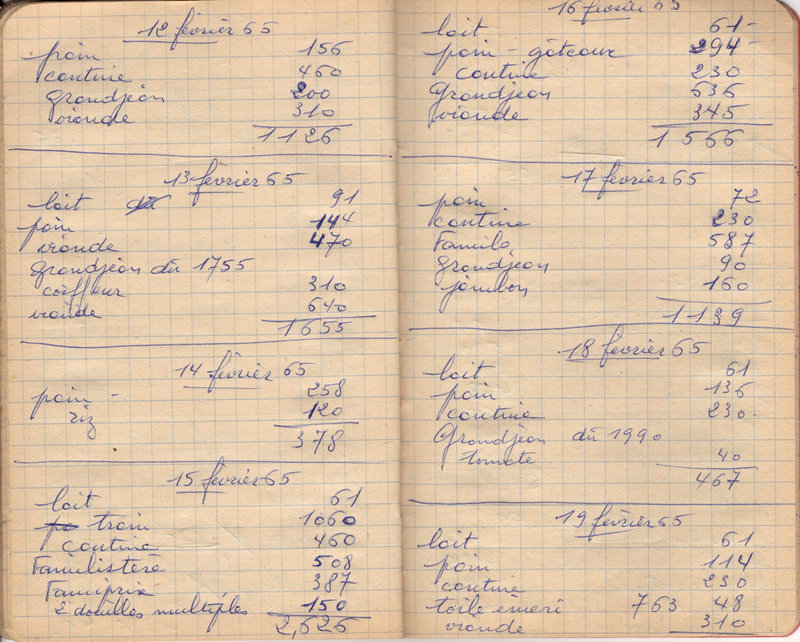 12 février 65
pain 156
cantine 460
grandjean 200
viande 310
1126
13 février 65
lait 91
pain 144
viande 470
grandjean dû 1755
coiffeur 310
viande 640
1655
14 février 65
pain - 258
riz 120
378
15 février 65
lait 61
train 1060
cantine 460
Familistère 508
Familiprix 387
2 douilles multiples 150
2,626
16 février 65
lait 61-
pain - gâteaux 294-
cantine 230
Grandjean 636
viande 345
1566
17 février 65
pain 72
cantine 230
Familo 587
grandjean 90
jambon 160
1139
18 février 65
lait 61
pain 136
cantine 230.
Grandjean dû 1990
tomate 40
467
19 février 65
lait 61
pain 114
cantine 230
toile emeri 763 48
viande 310